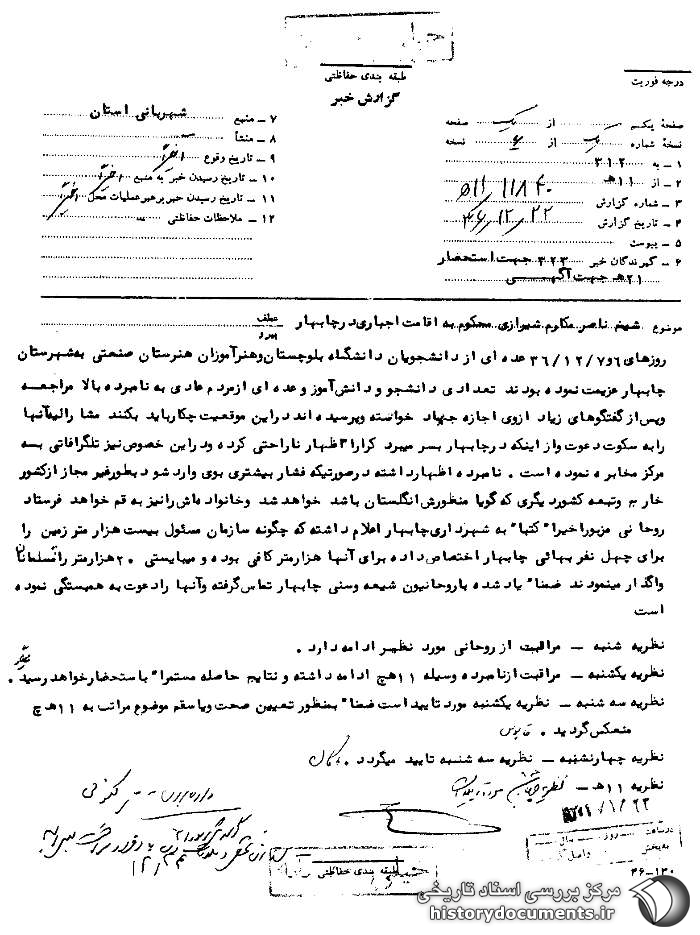 طبقه بندی حفاظتی
گزارش خبر
درجه فوریت
صفحه یک از یک صفحه
نسخه شماره از نسخه
۱ ـ به ۳۱۲
۲ ـ از ۱۱ هـ
۳ ـ شماره گزارش ۱۱۸۴۰ / ۱۱ هـ
۴ ـ تاریخ گزارش ۳۶/۱۲/۲۲
۵ ـ پیوست
۶ ـ گیرندگان خبر ۳۲۳ جهت استحضار
۲۱ هـ جهت آگهی
۷ ـ منبع شهربانی استان
۸ ـ منشأ
۹ ـ تاریخ وقوع
۱۰ ـ تاریخ رسیدن خبر به منبع
۱۱ ـ تاریخ رسیدن خبر برهبر عملیات محل
۱۲ ـ ملاحظات حفاظتی
موضوع شیخ ناصر مکارم شیرازی محکوم به اقامت اجباری در چابهار
عطف
پیرو
روزهای ۶و۳۶/۱۲/۷ عده ای از دانشجویان دانشگاه بلوچستان وهنرآموزان هنرستان صنعتی به شهرستان
چابهار عزیمت نموده بودند تعدادی دانشجو و دانش آموز و عده ای ازمردم عادی به نامبرده بالا مراجعه
وپس از گفتگوهای زیاد ازوی اجازه جهاد خواسته وپرسیده اند دراین موقعیت چکارباید بکنند مشارالیه آنها
رابه سکوت دعوت واز اینکه درچابهار بسر میبرد کرارا" اظهار ناراحتی کرده ودراین خصوص نیز تلگرافاتی بسه
مرکز مخابره نموده است . نامبرده اظهارداشته درصورتیکه فشار بیشتری بوی وارد شود بطور غیر مجاز ازکشور
خارج وتبعه کشوردیگری که گویا منظورش انگلستان باشد خواهد شد وخانواده اش رانیز به قم خواهد فرستاد
روحانی مزبور اخیرا" کتبا" به شهرداری چابهار اعلام داشته که چگونه سازمان مسئول بیست هزار متر زمین را
برای چهل نفر بهائی چابهار اختصاص داده برای آنها هزارمتر کافی بوده و میبایستی ۲۰هزارمتر را بمسلمانان
واگذار مینمودند ضمنا" یاد شده باروحانیون شیعه وسنی چابهار تماس گرفته وآنها رادعوت به همبستگی نموده
است
نظریه شنبه ـ مراقبت از روحانی مورد نظر ادامه دارد .
نظریه یکشنبه ـ مراقبت ازنامبرده وسیله ۱۱ هـ چ ادامه داشته و نتایج حاصله مستمرا" باستحضار خواهد رسید .
نظریه سه شنبه ـ نظریه یکشنبه مورد تایید است ضمنا" بمنظور تعیین صحت ویا سقم موضوع مراتب به ۱۱ هـ چ
منعکس گردید .
نظریه چهارشنبه ـ نظریه سه شنبه تایید میگردد .
نظریه ۱۱ هـ ـ نظریه چهارشنبه مورد تایید است
طبقه بندی حفاظتی
درساعت روز
به بخش واصل
۴۶-۱۳۰
مرکز بررسی اسناد تاریخی
historydocuments.ir